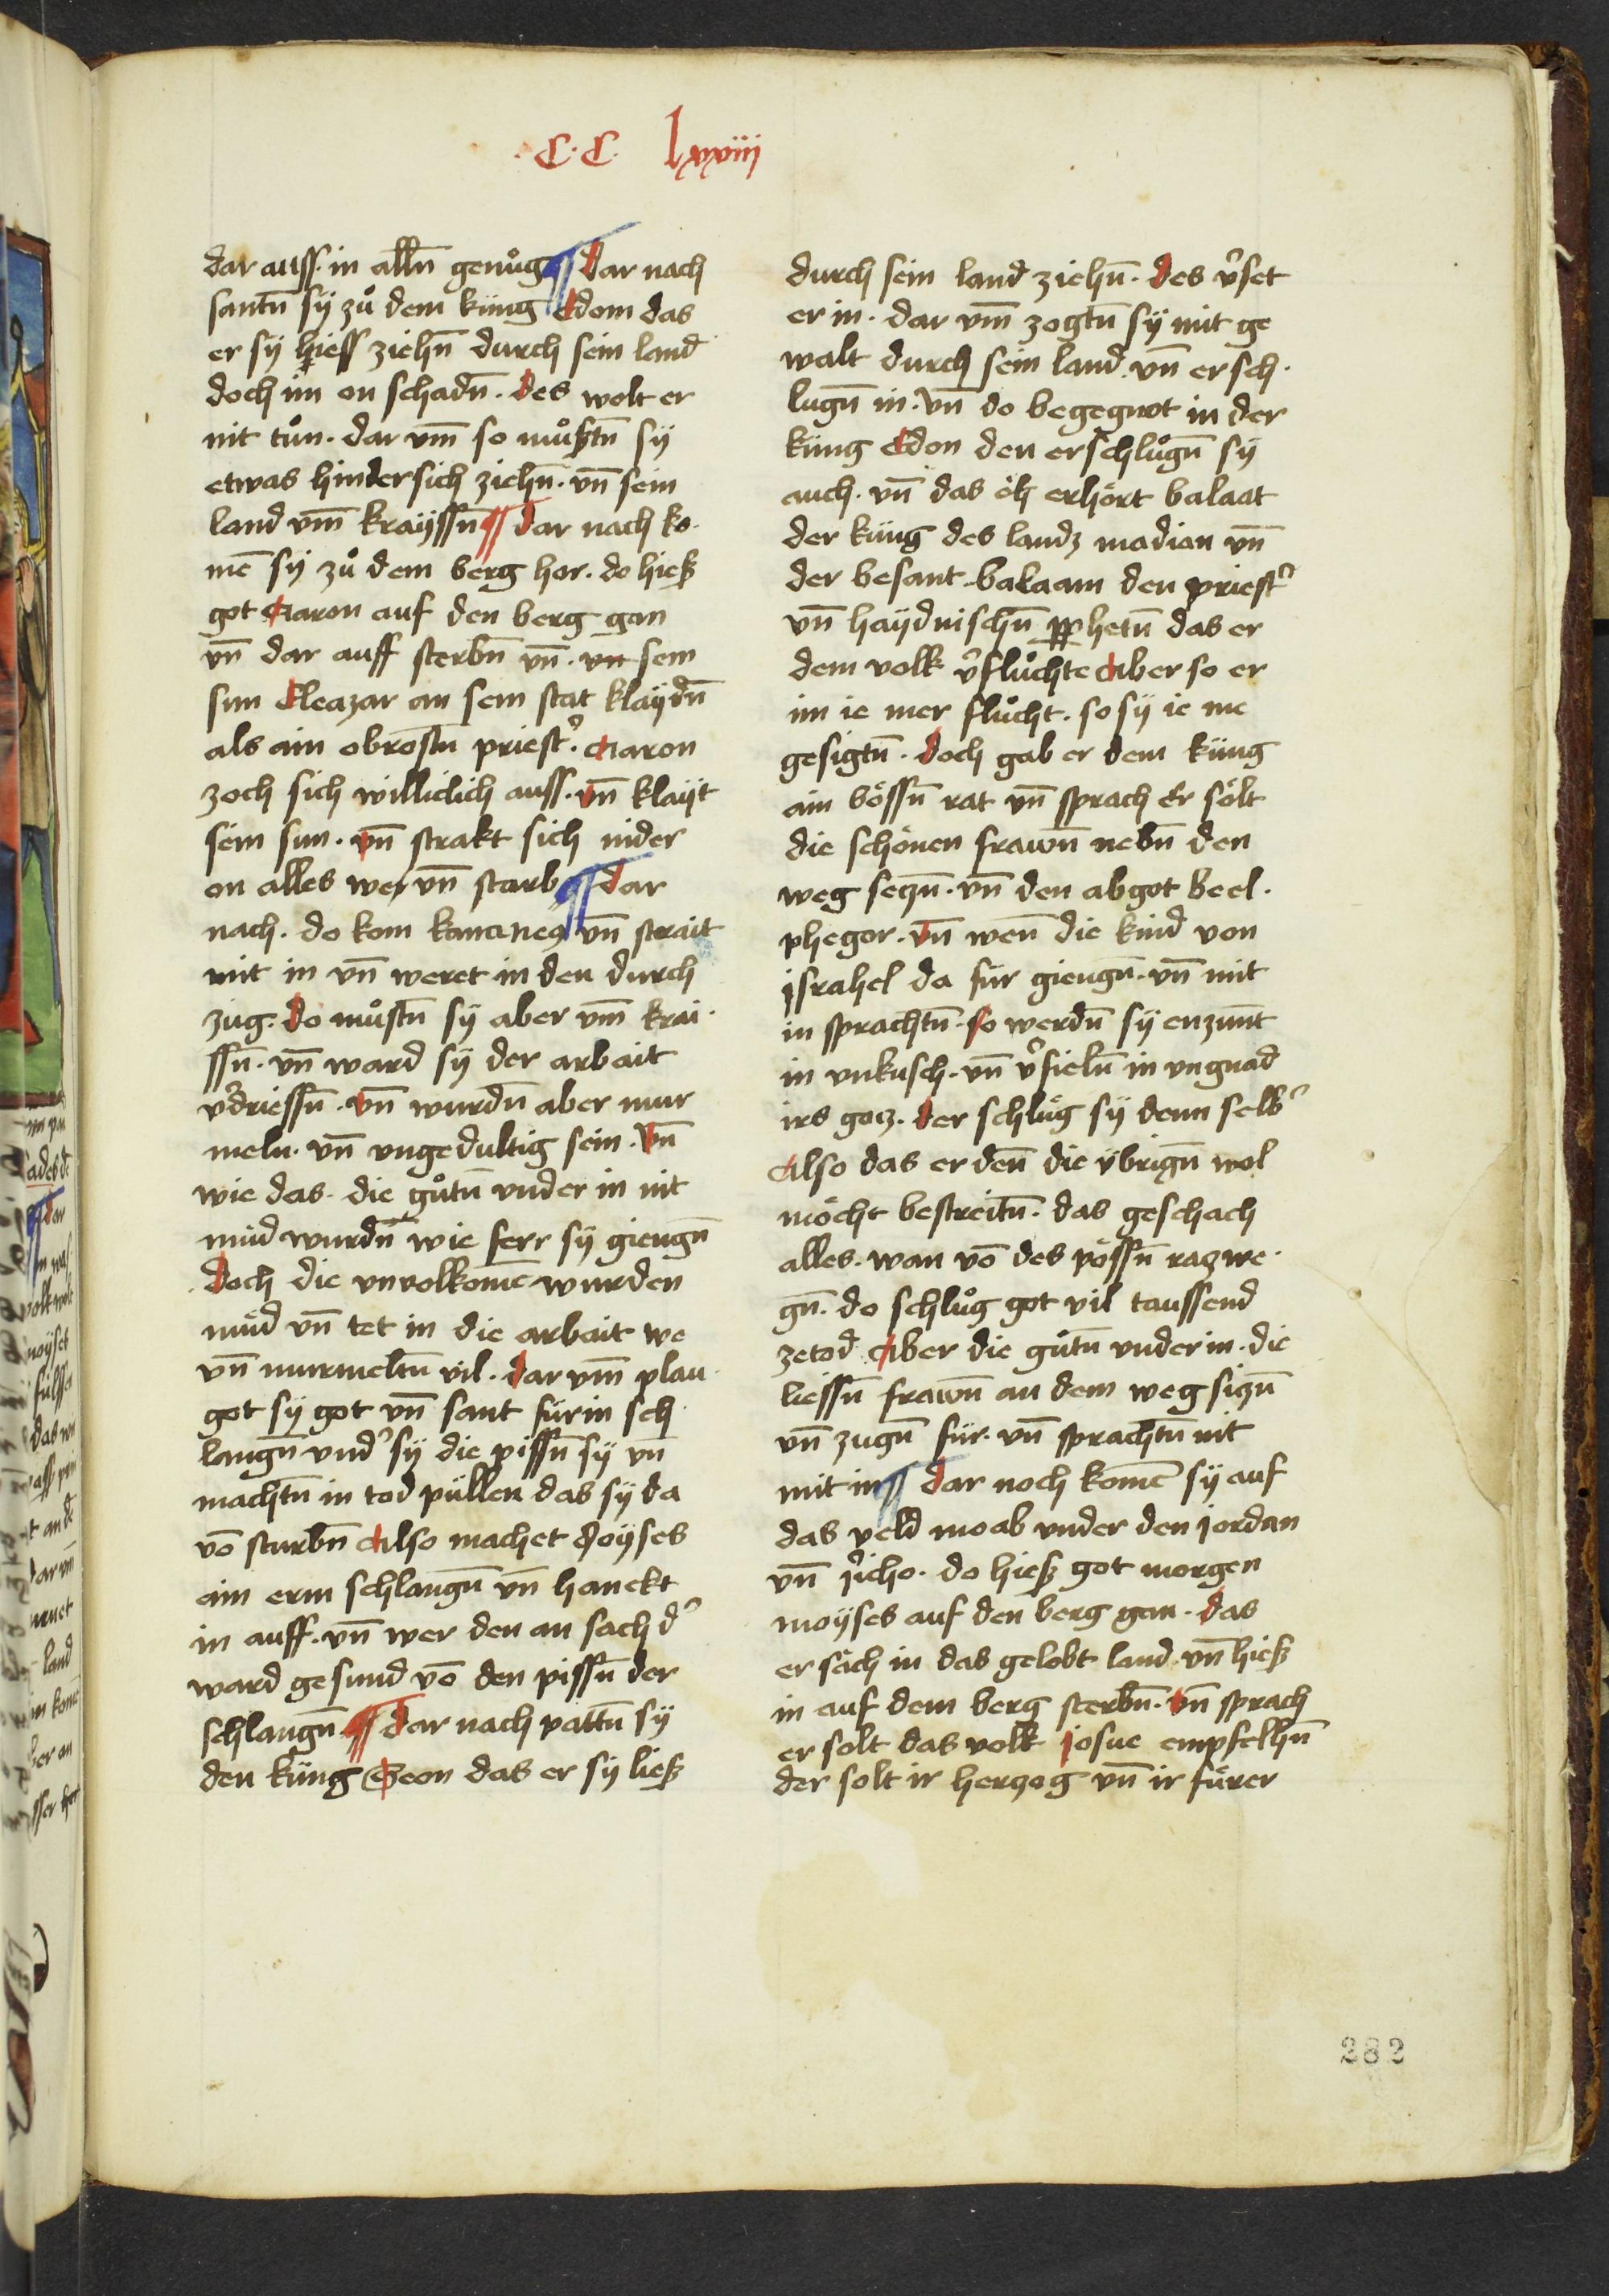 ·C·C· lxxiij
dar auss· in alln̄ genůg ¶ Dar nach
santn̄ sÿ zů dem küng Edom das
er sÿ hiess ziehn̄ durch sein land
doch im on schadn̄· Des wolt er
nit tůn· dar vm̄ so můstn̄ sÿ
etwas hindersich ziehn̄· vn̄ sein
land vm̄ kraÿssn̄ ¶ Dar nach ko·
mē sÿ zů dem berg hor· do hieß
got Aaron auf den berg gan
vn̄ dar auff sterbn̄ vn̄· vn sem
sun Eleazar an sem stat klaÿdn̄
als ain obrostn̄ priest̉· Aaron
zoch sich williclich auss· Vn̄ klaÿt
sein sun· Vn̄ strakt sich nider
on alles we, vn̄ starb ¶ Dar
nach· do kom kananeꝰ vn̄ strait
mit in vn̄ weret in den durch
zug· Do můstn̄ sÿ aber vm̄ krai·
ssn̄· vn̄ ward sÿ der arbait
v̉driessn̄· Vn̄ wurdn̄ aber mur
meln· vn̄ vngedultig sein· Vn̄
wie das· die gůtn̄ vnder in nit
müd wurdn̄ wie ferr sÿ giengn̄
Doch die vnvolkomē wurden
müd vn̄ tet in die arbait we
vn̄ murmeltn̄ vil· Dar vm̄ plau·
got sÿ got vn̄ sant fürin sch
langn̄ vnd̉ sÿ die pissn̄ sÿ vn̄
machtn̄ in tod püllen das sÿ da
vō sturbn̄ Also machet Moÿses
ain erin schlangn̄ vn̄ hanckt
in auff· vn̄ wer den an sach d̉
ward gesund vō den pissn̄ der
schlangn̄· ¶ Dar nach pattn̄ sÿ
den küng Seon das er sÿ ließ
durch sein land ziehn̄· Des v̉set
er in· dar vm̄ zogtn̄ sÿ mit ge
walt durch sein land· vn̄ ersch·
lugn̄ in· Vn̄ do begegnot in der
küng Edon den erschlůgn̄ sÿ
auch· vn̄ das öch erhört balaat
der küng des landz madian vn̄
der besant balaam den priest̉
vn̄ haÿdnischn̄ ꝓphetn̄ das er
dem volk v̉flůchte Aber so er
im ie mer flůcht· so sÿ ie me
gesigtn̄· Doch gab er dem küng
ain bössn̄ rat vn̄ sprach Er sölt
die schönen frawn̄ nebn̄ den
weg seczn̄· vn̄ den abgot beel·
phegor· Vn̄ wen̄ die kind von
Israhel da für giengn̄· vn̄ mit
in sprachtn̄· So werdn̄ sÿ enzunt
in vnkusch· vn̄ v̉fieln̄ in vngnad
irs gocz· Der schlüg sÿ denn selb̉
Also das er den̄ die v̈brign̄ wol
möcht bestreitn̄· das geschach
alles· wan vō des pössn̄ racz we·
gn̄· do schlůg got vil taussend
zetod Aber die gůtn̄ vnder in· die
liessn̄ frawn̄ an dem weg siczn̄
vn̄ zugn̄ für· vn̄ sprachtn̄ nit
mit in ¶ Dar noch komē sÿ auf
das veld moab vnder den Jordan
vn̄ j̉icho· do hieß got morgen
moÿses auf den berg gan· Das
er säch in das gelobt land· vn̄ hieß
in auf dem berg sterbn̄· Vn̄ sprach
er solt das volk Josue empfelhn̄
der solt ir herczog vn̄ ir fürer
282